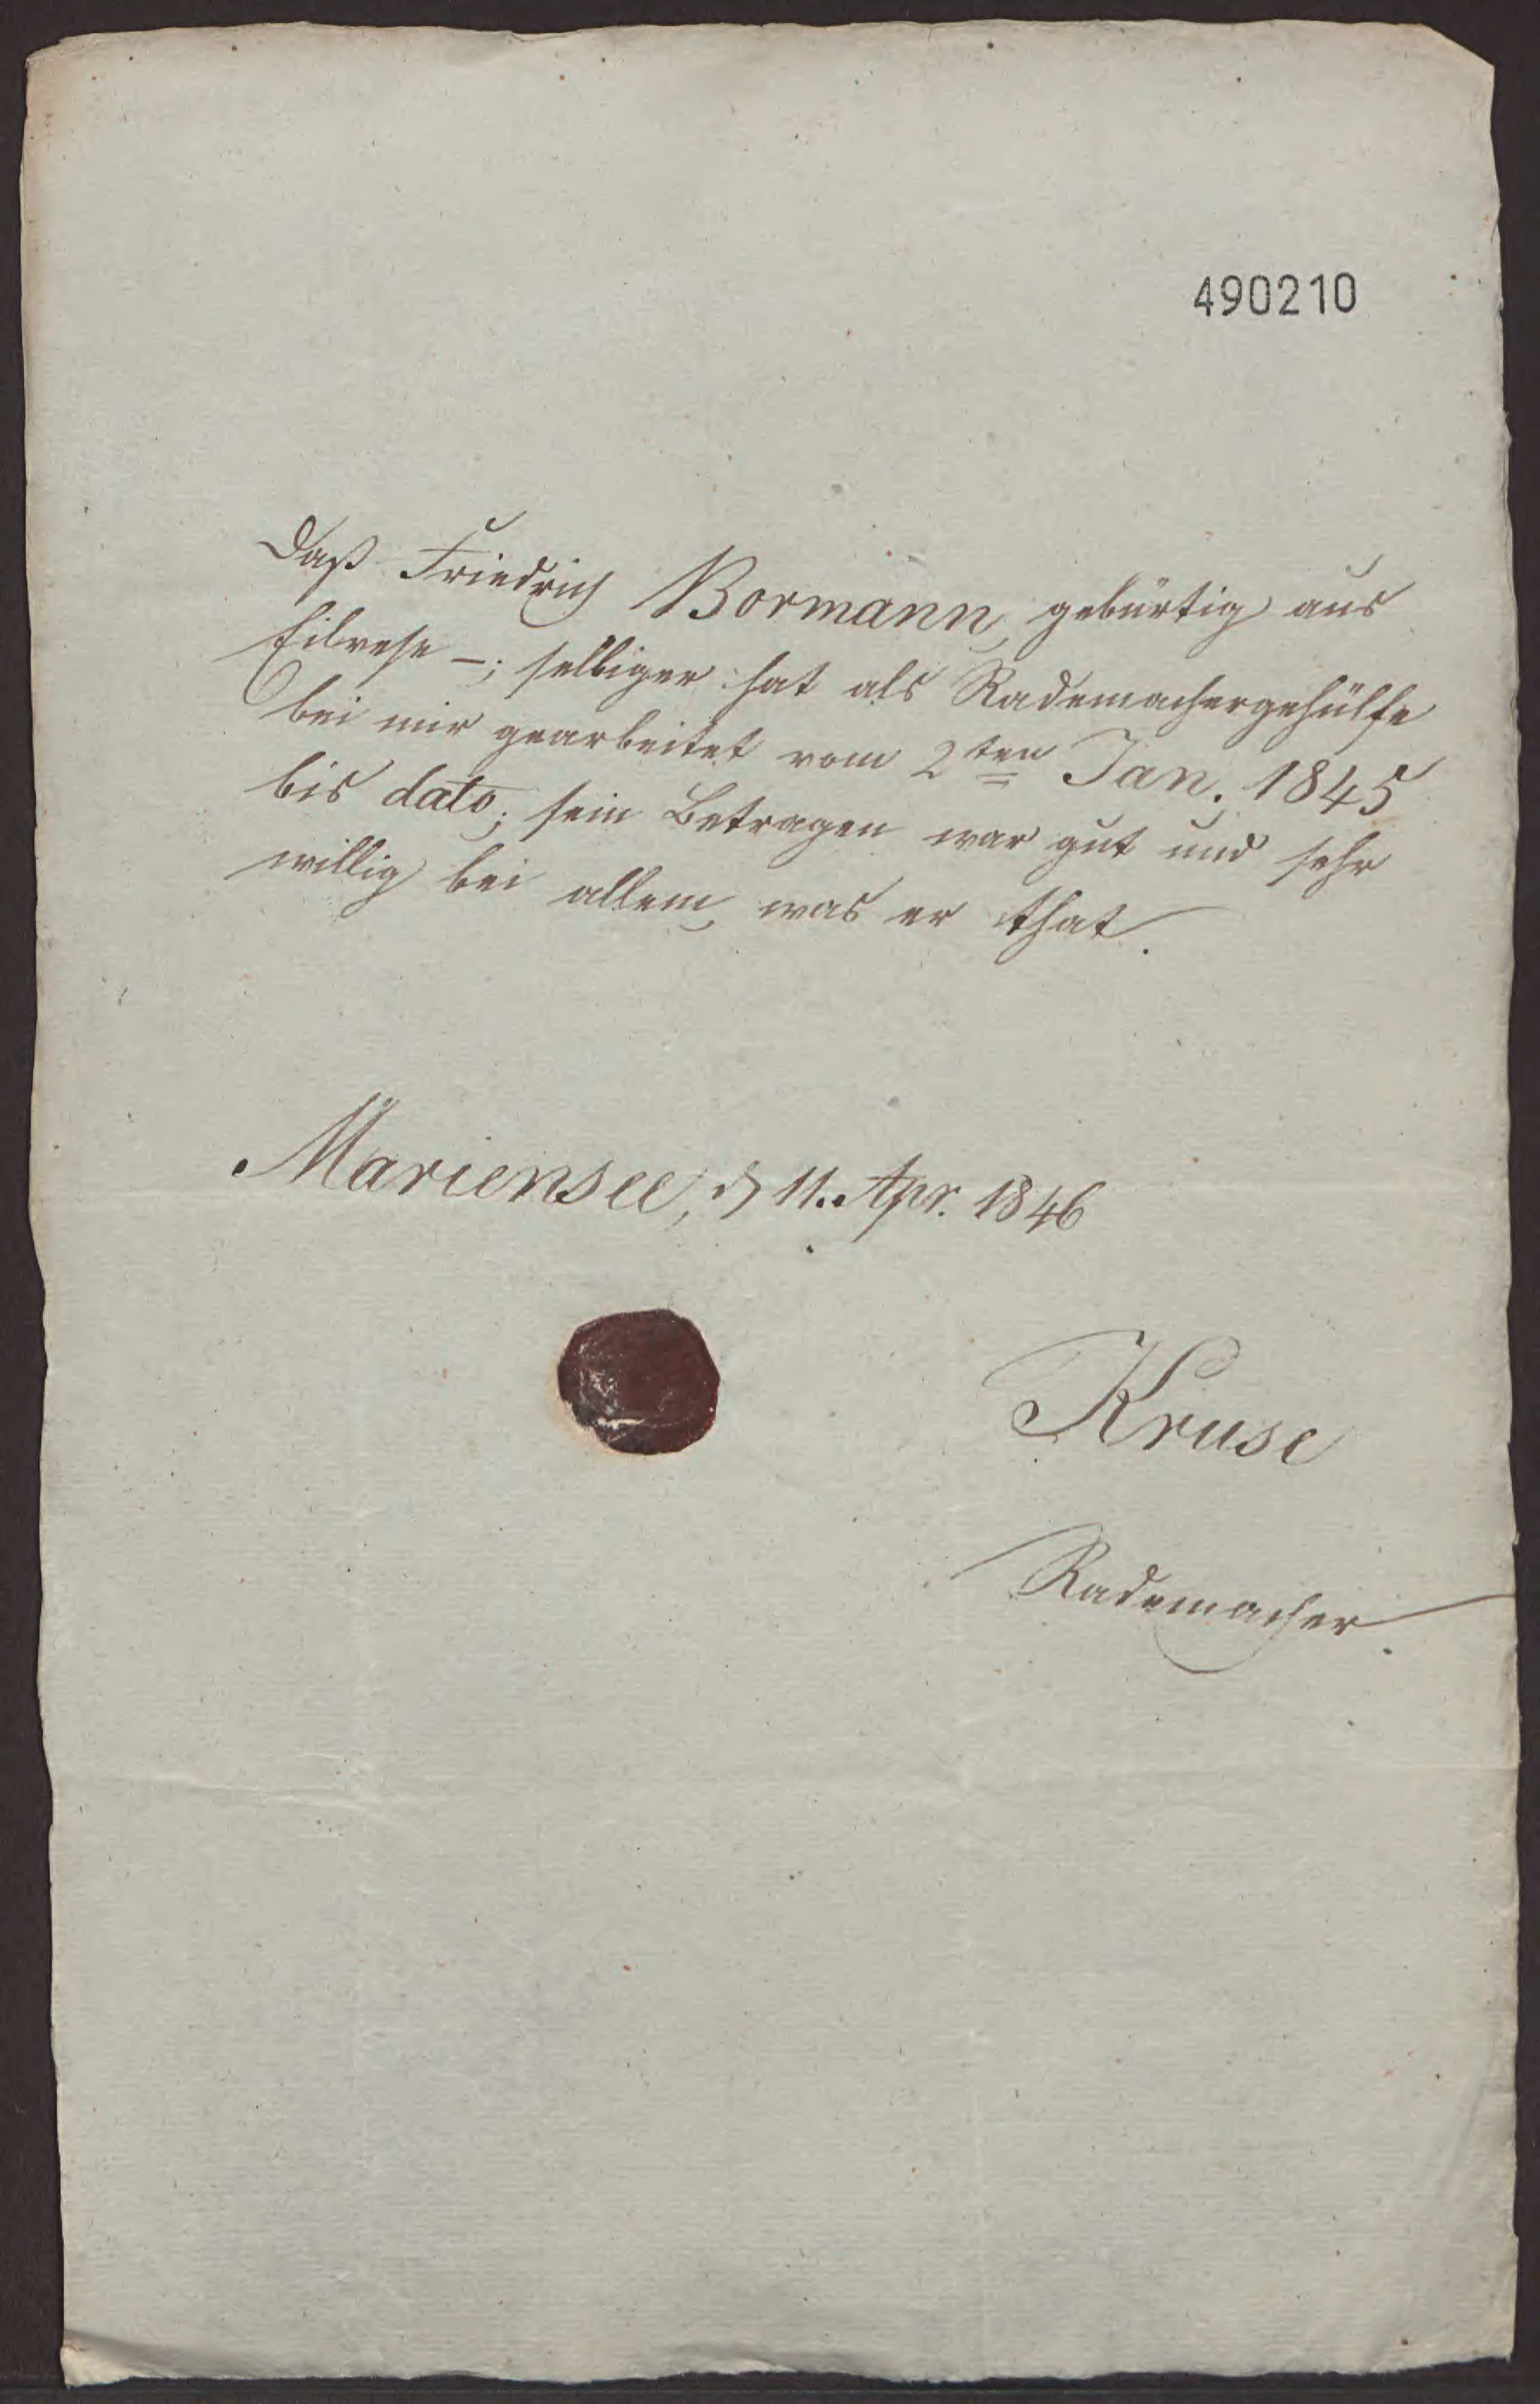 490210
Daß Friedrich Bormann, gebürtig aus
Eilvese –; selbiger hat als Rademachergehülfe
bei mir gearbeitet vom 2ten Jan. 1845
bis dato; sein Betragen war gut und sehr
willig bei allem, was er that.
Mariensee, d 11. Apr. 1846
Kruse
Rademacher.